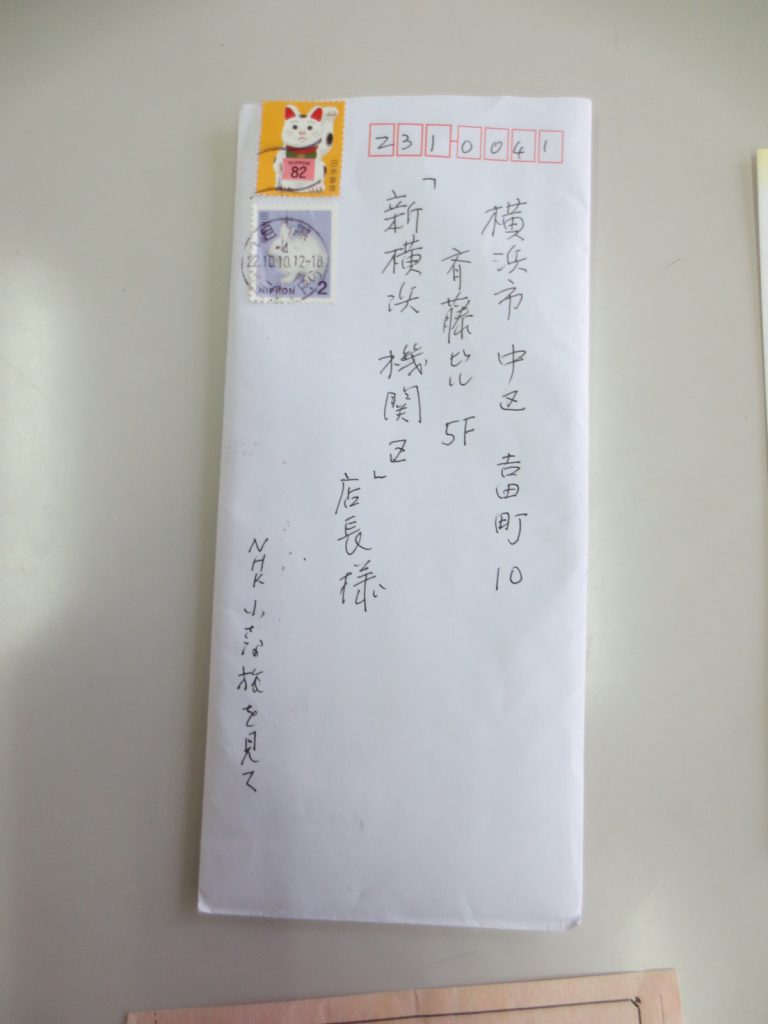 2310041
横浜市中区吉田町10
斉藤ビル 5F
「新横浜機関区」
店長様
NHK小さな旅を見て
NIPPON
82
日本郵便
22.10.10.12-18
NIPPON 2